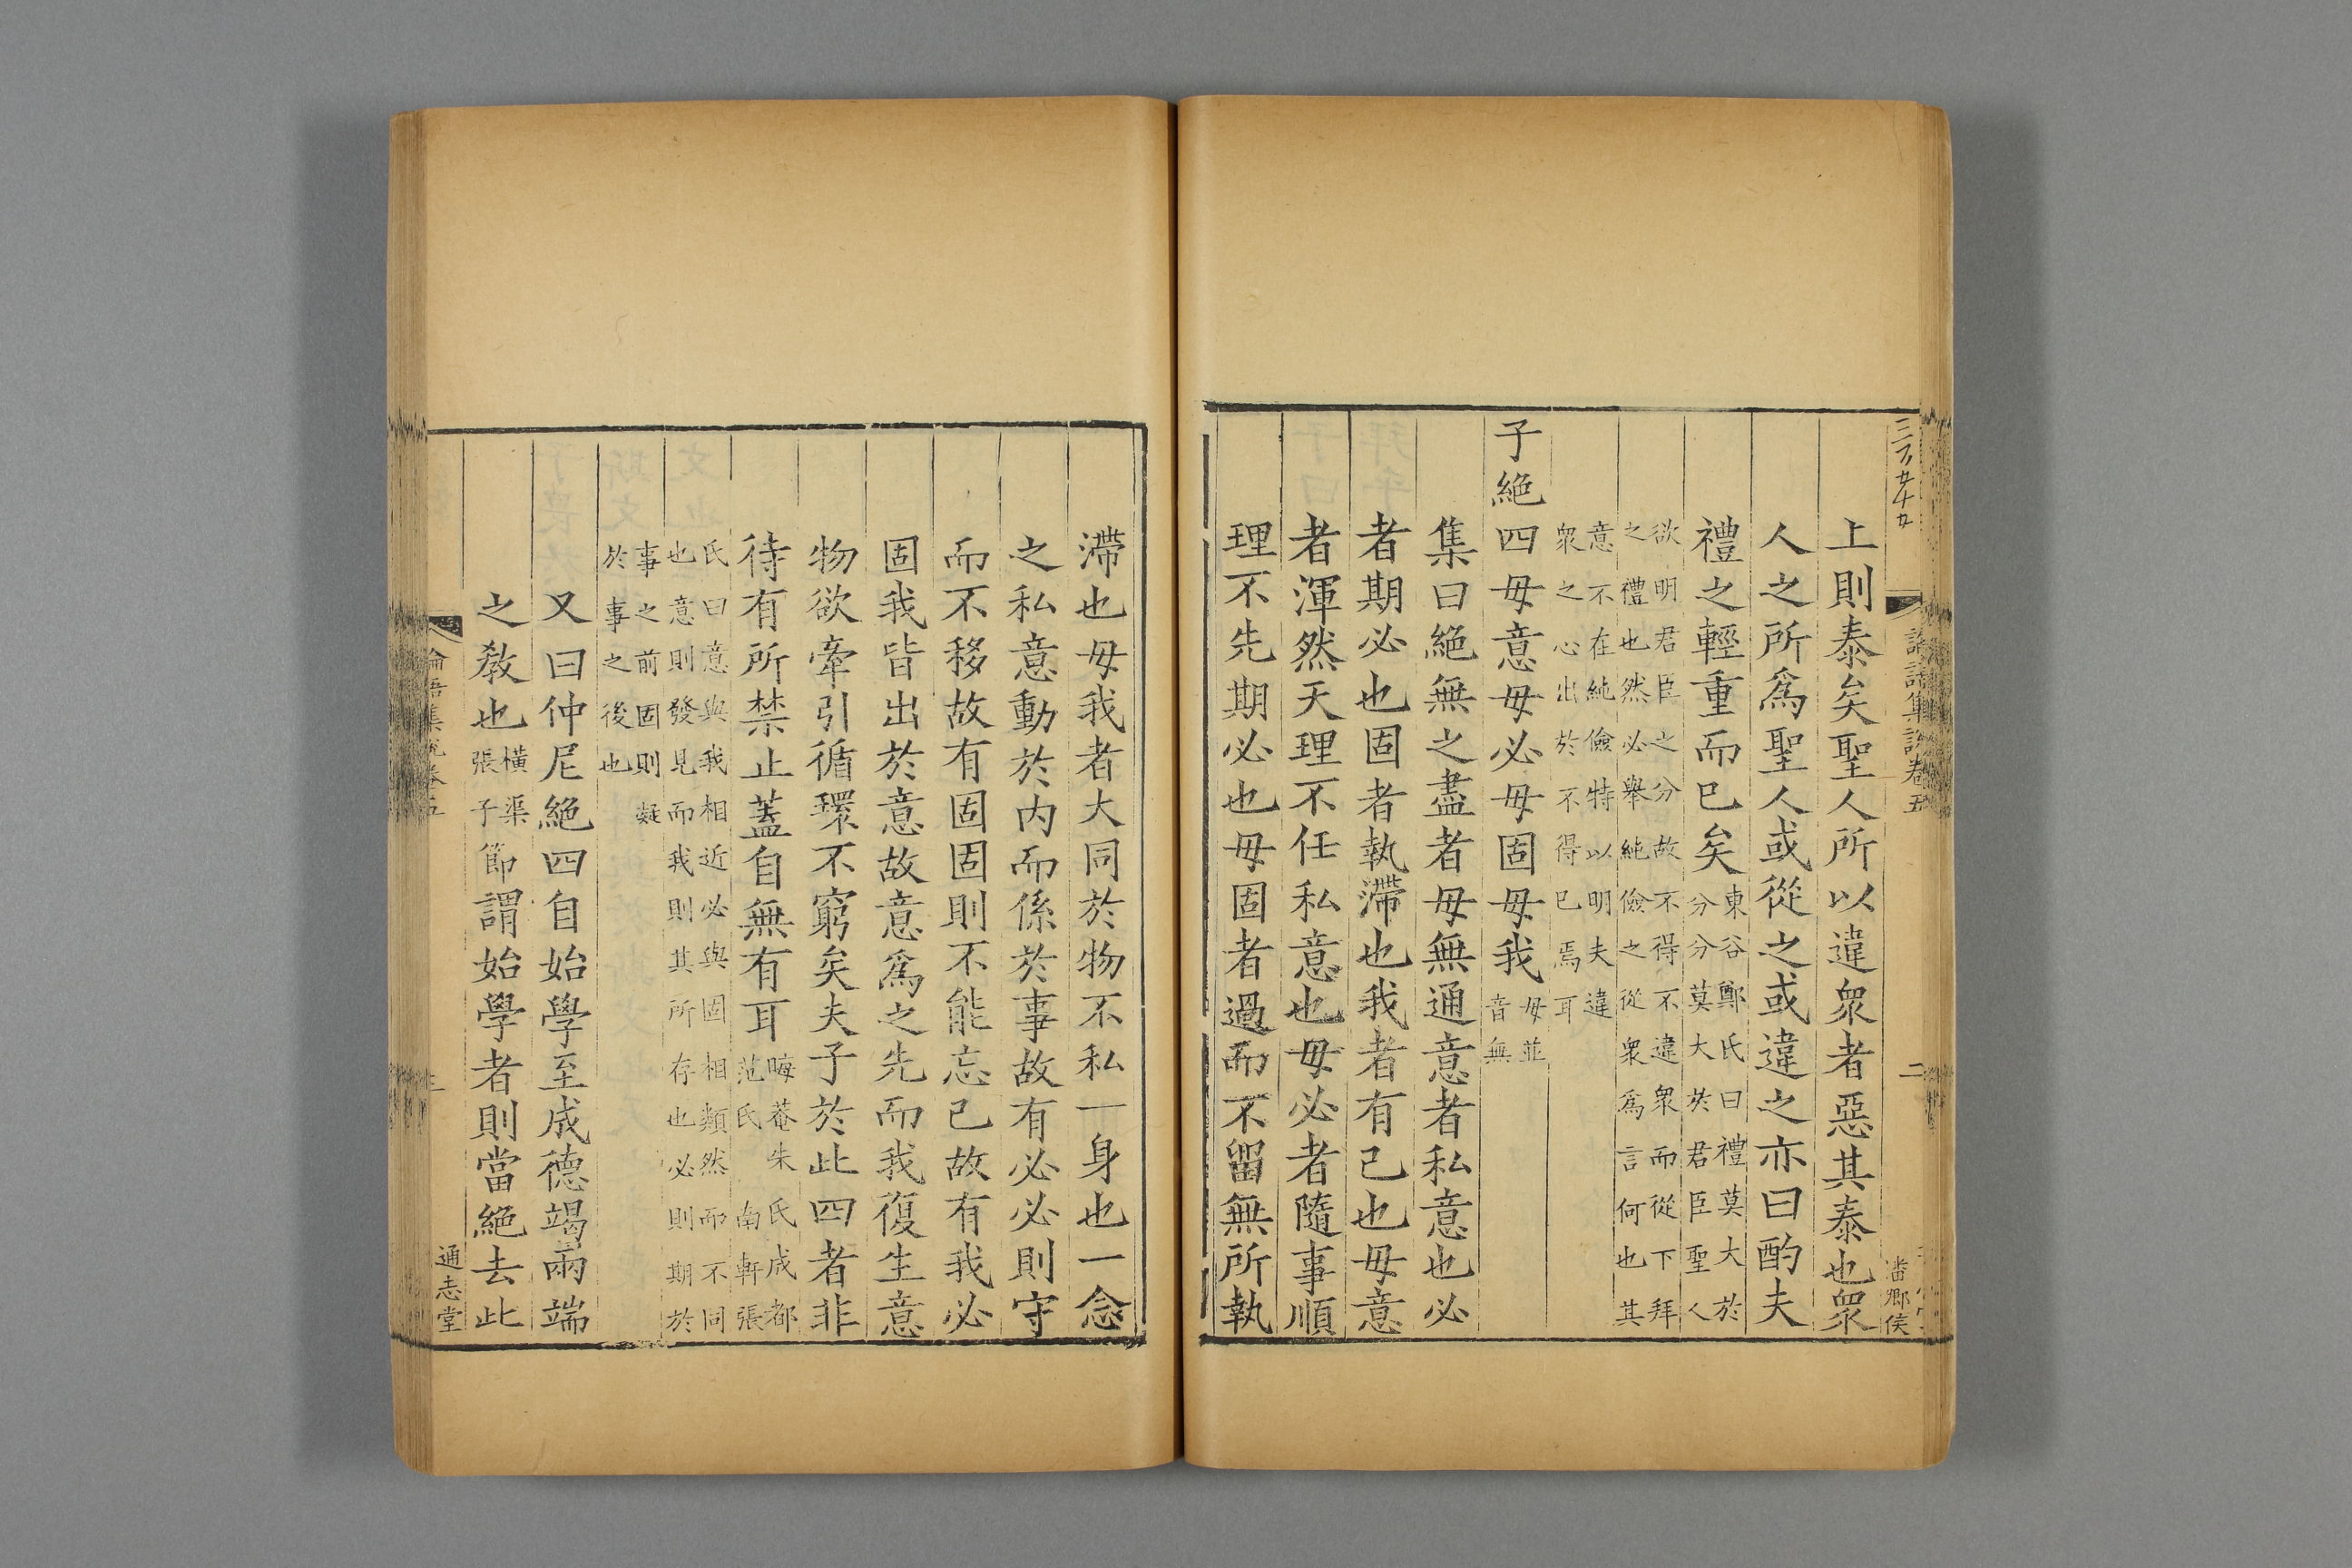 論語集說卷五
二
潘鄉侯
上則泰矣聖人所以違衆者惡其泰也衆
人之所爲聖人或從之或違之亦曰酌夫
禮之輕重而已矣
東谷鄭氏曰禮莫大於
分分莫大於君臣聖人
欲明君臣之分故不得不違衆而從下拜
之禮也然必舉純儉之從衆爲言何也其
意不在純儉特以明夫違
衆之心出於不得已焉耳
子絕四毋意毋必毋固毋我
毋並
音無
集曰絕無之盡者毋無通意者私意也必
者期必也固者執滯也我者有己也毋意
者渾然天理不任私意也毋必者隨事順
理不先期必也毋固者過而不留無所執
滯也毋我者大同於物不私一身也一念
之私意動於内而係於事故有必必則守
而不移故有固固則不能忘己故有我必
固我皆出於意故意爲之先而我復生意
物欲牽引循環不窮矣夫子於此四者非
待有所禁止蓋自無有耳
晦菴朱氏成都
范氏南軒張
氏曰意與我相近必與固相類然而不同
也意則發見而我則其所存也必則期於
事之前固則凝
於事之後也
又曰仲尼絕四自始學至成德竭兩端
之教也
橫渠
張子
節謂始學者則當絕去此
論語集說卷五
通志堂